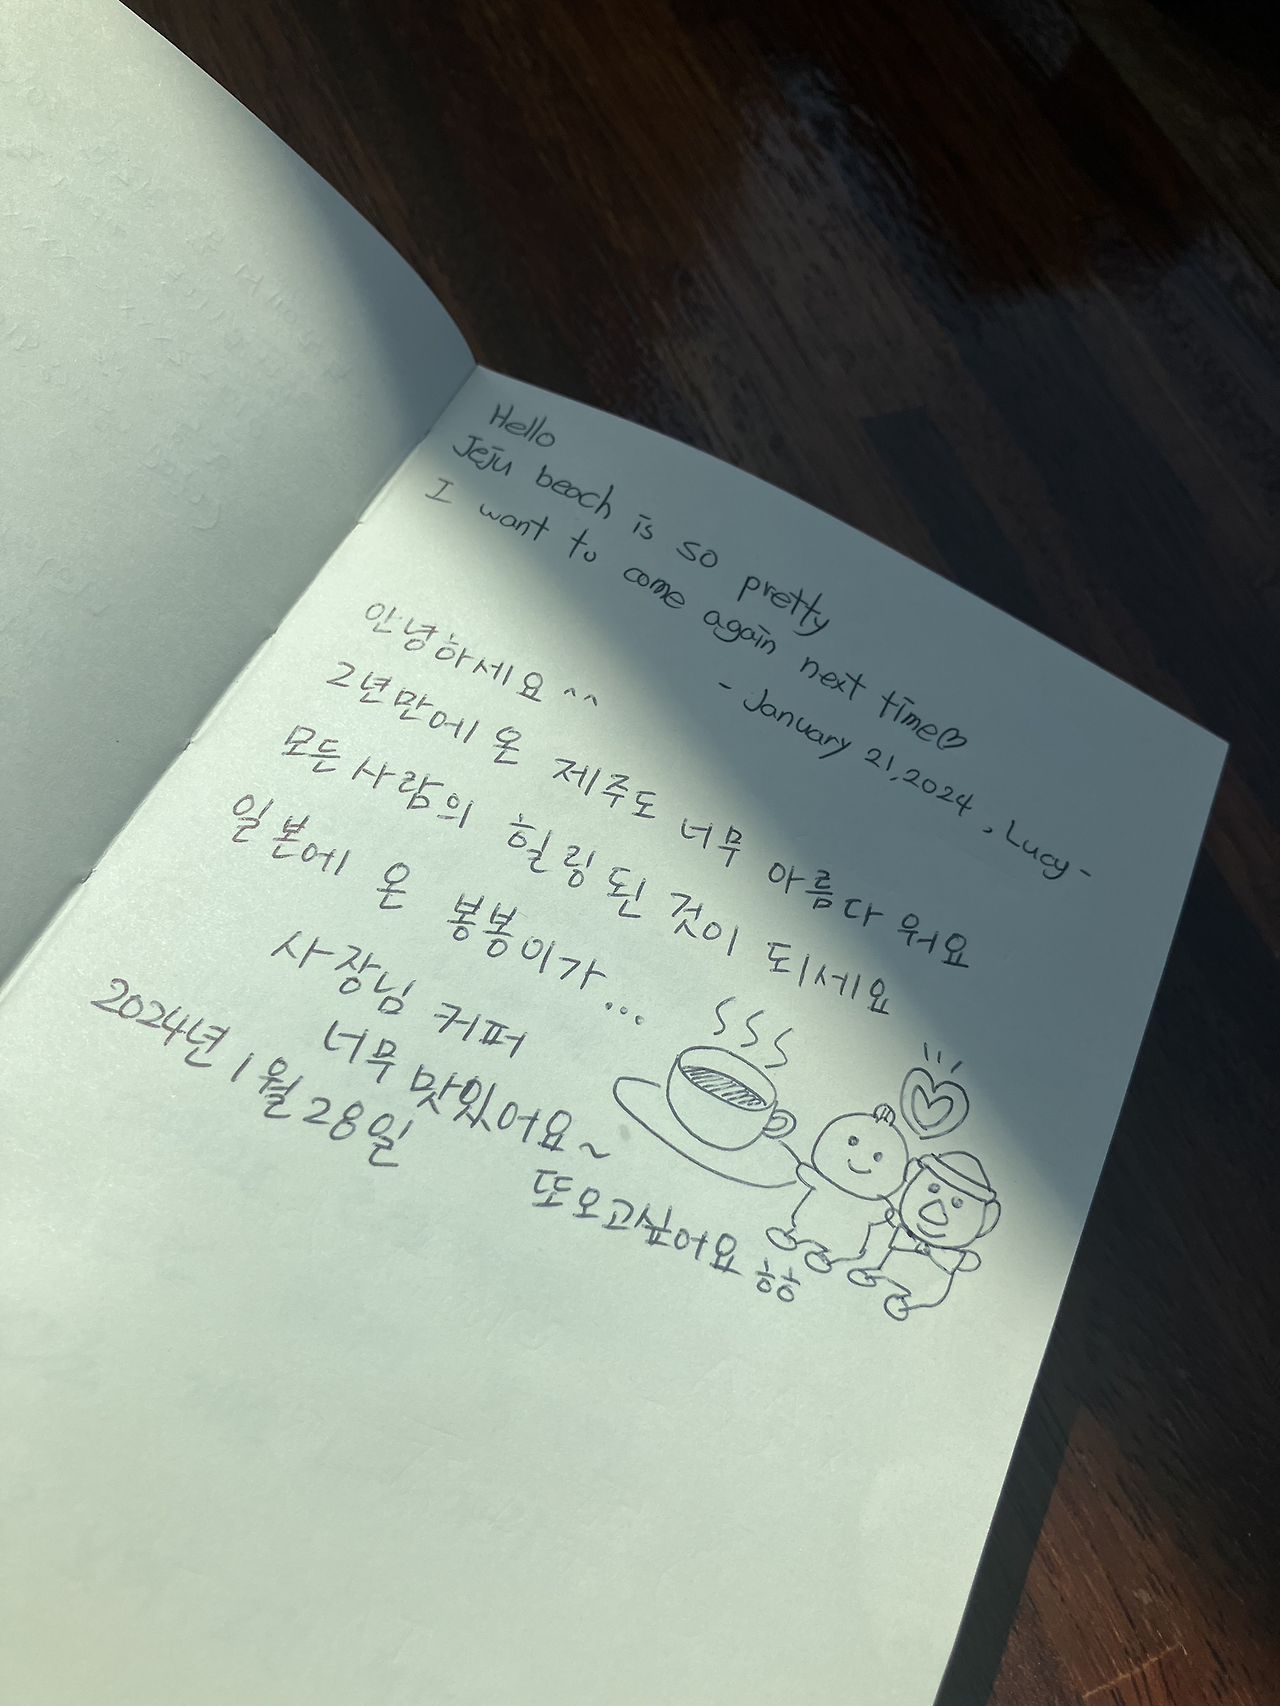 Hello
Jeju beach is so pretty
I want to come again next time♡
- January 21, 2024, Lucy -
안녕하세요^^
2년만에 온 제주도 너무 아름다워요
모든 사람의 힐링 된 것이 되세요
일본에 온 봉봉이가...
사장님 커퍼
너무 맛있어요~
2024년 1월 28일
또 오고싶어요 ㅎㅎ